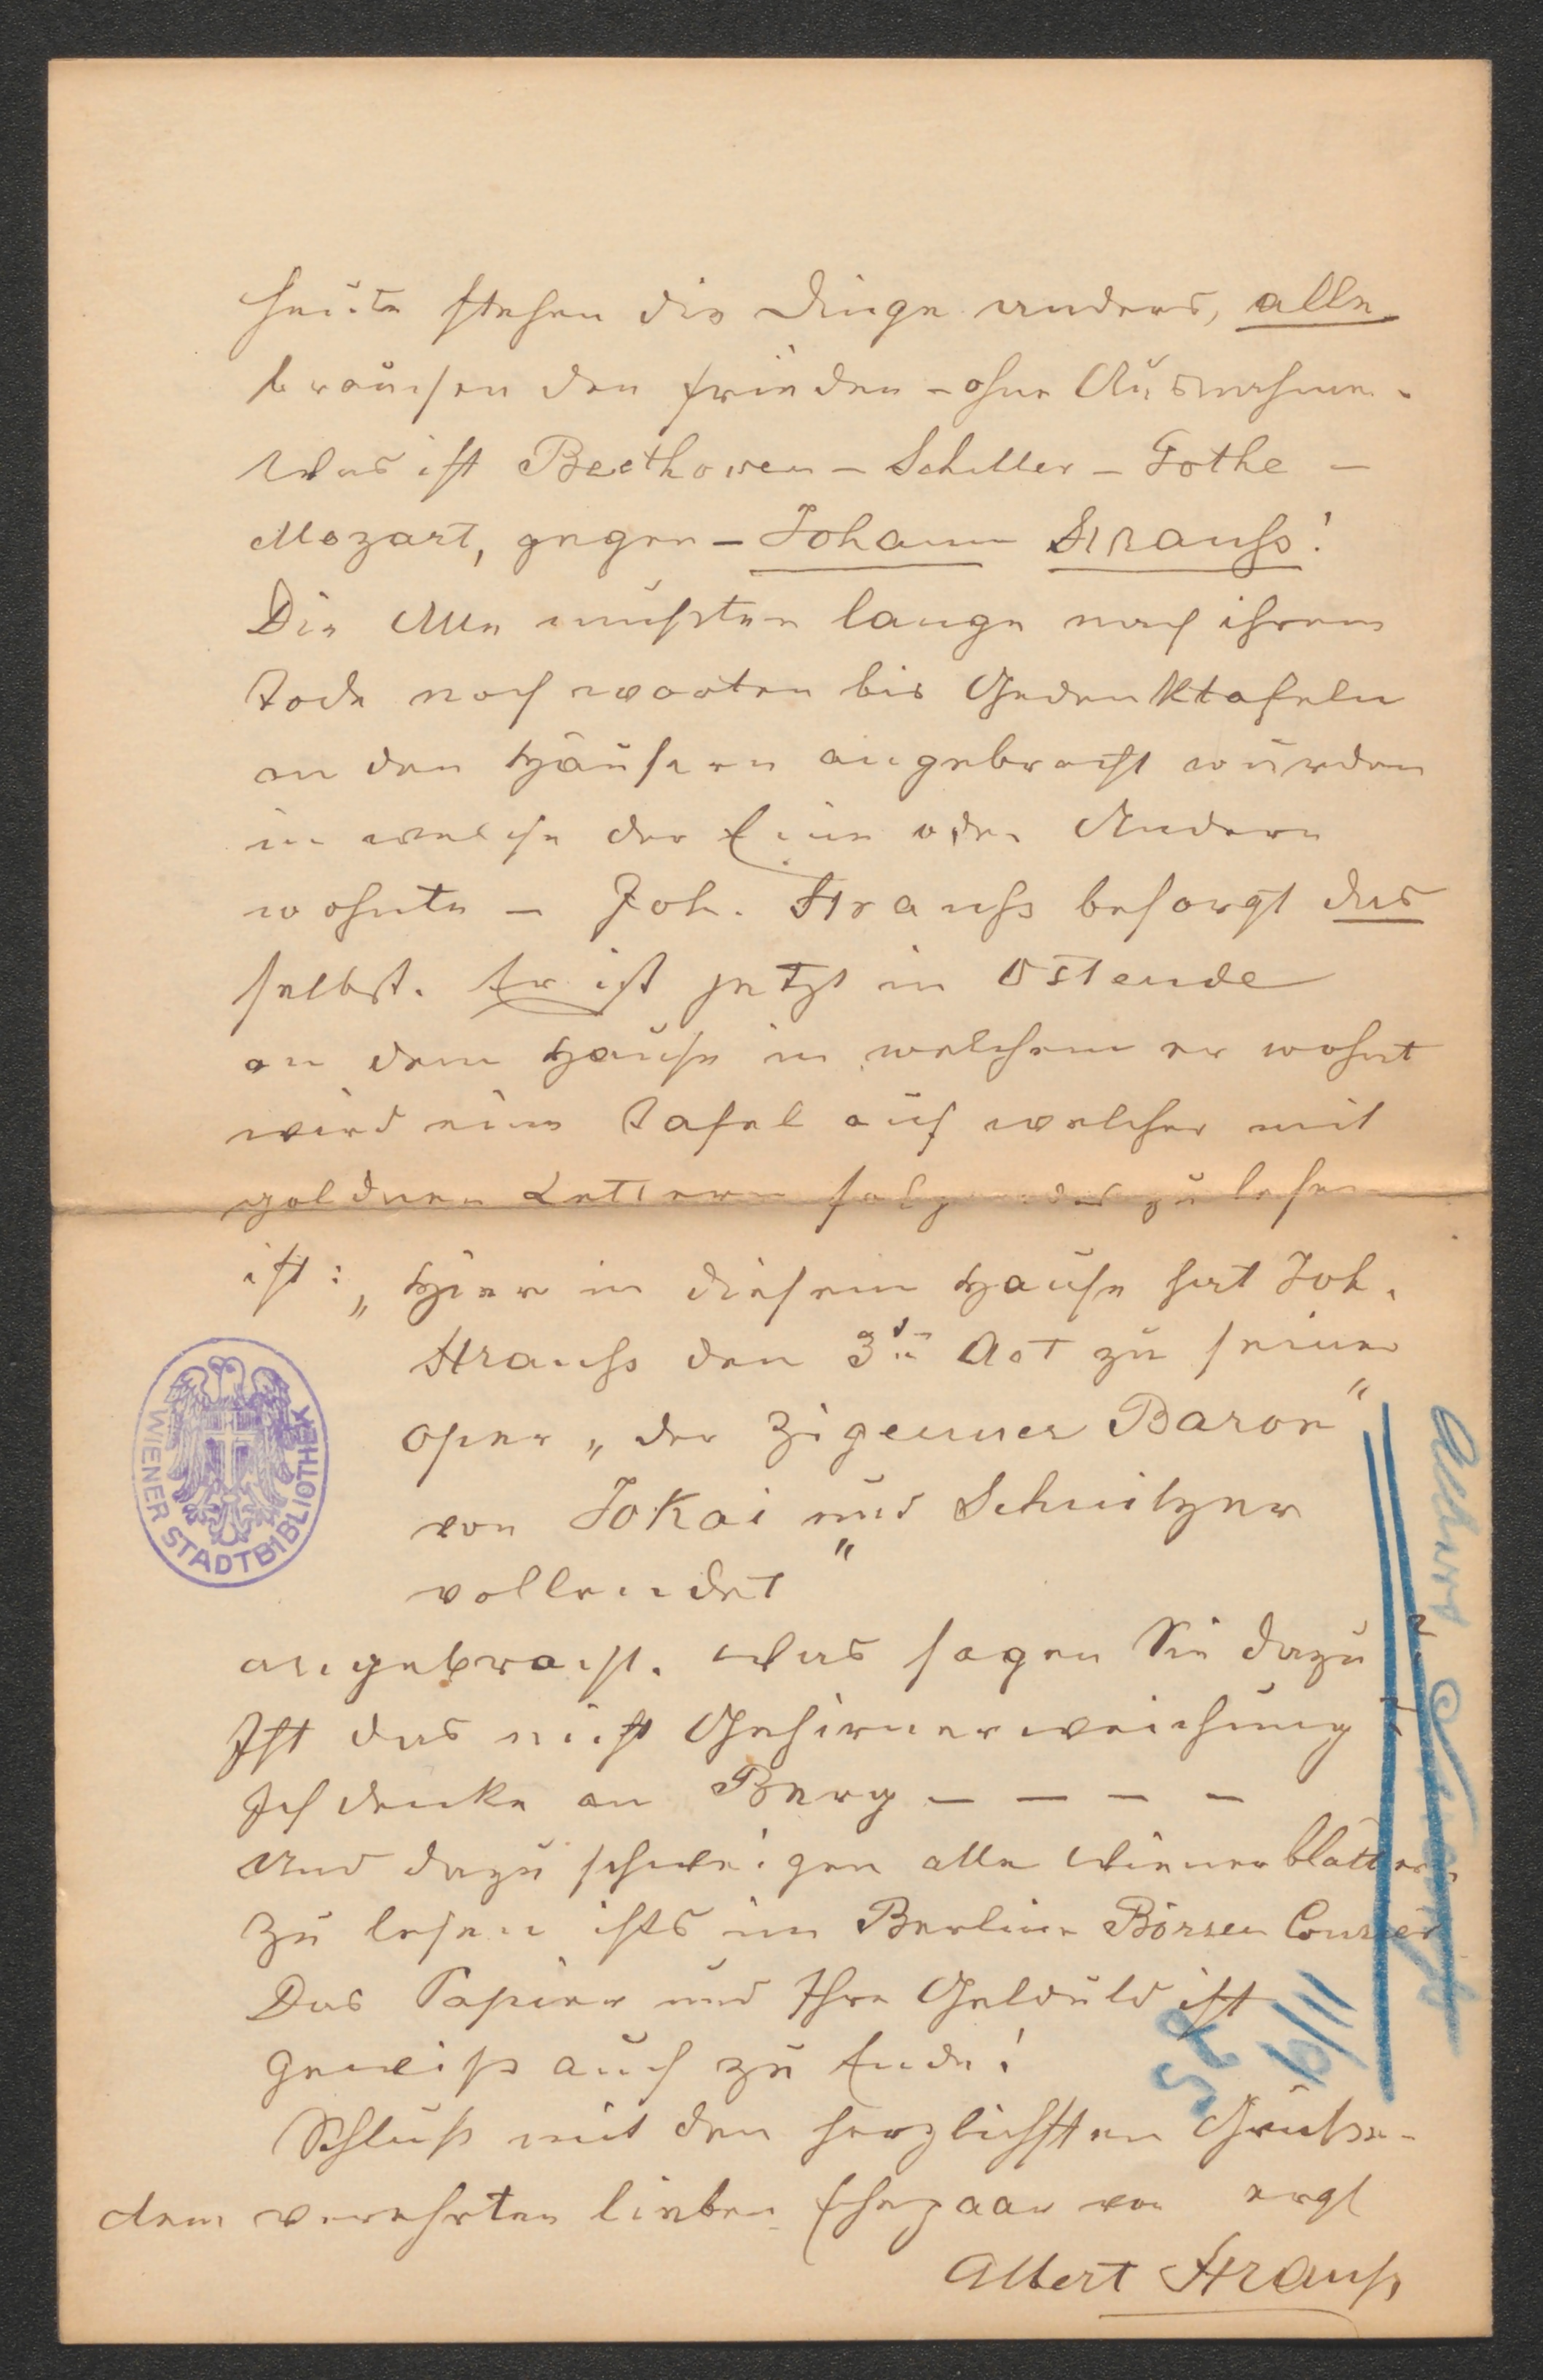 heute stehen die Dinge anders, alle
brauchen den Frieden – ohne Ausnahme.
Was ist Beethoven – Schiller – Göthe –
Mozart, gegen – Johann Strauß!
Die Alle mußten lange nach ihrem
Tode noch warten bis Gedenktafeln
an den Häusern angebracht wurden
in welche der Eine oder Andere
wohnte – Joh. Strauß besorgt das
selbst. Er ist jetzt in Ostende
an dem Hause in welchem er wohnt
wird eine Tafel auf welcher mit
goldnen Lettern folgendes zu lesen
ist: „Hier in diesem Hause hat Joh.
Strauß den 3ten Act zu seiner
Oper „der Zigeuner Baron"
von Jokai und Schnitzer
vollendet"
angebracht. Was sagen Sie dazu?
Ist das nicht Gehirnerweichung?
Ich denke an Berg – – – –
Und dazu schweigen alle Wiener blätter.
zu lesen ists im Berliner Börsen Courier
Das Papier und Ihre Geduld ist
gewiß auch zu Ende!
Schluß mit den herzlichsten Grüßen
dem verehrten lieben Ehepaar von ergl
Albert Strauß
WIENER STADTBIBLIOTHEK
Albert Strauß